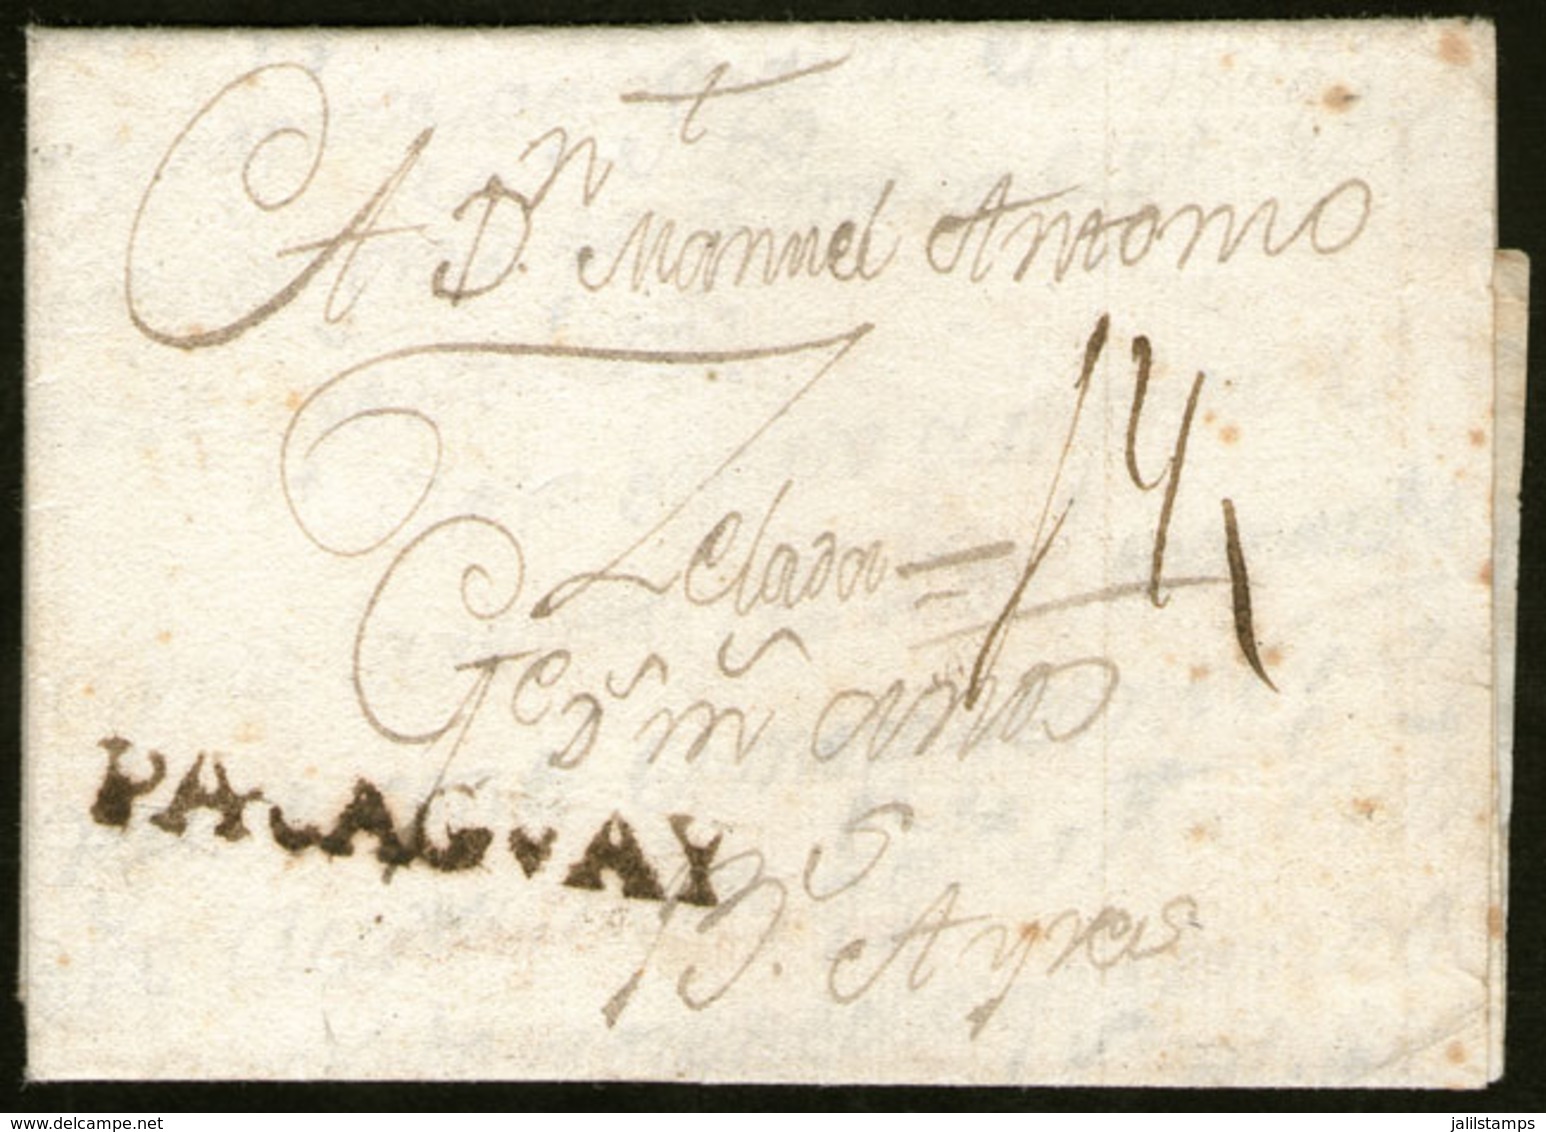 A D.n Manuel Antonio
Zelada =
G.e D.s m.s años
PARAGVAY
B.s Ayres
delcampe.net
jalilstamps